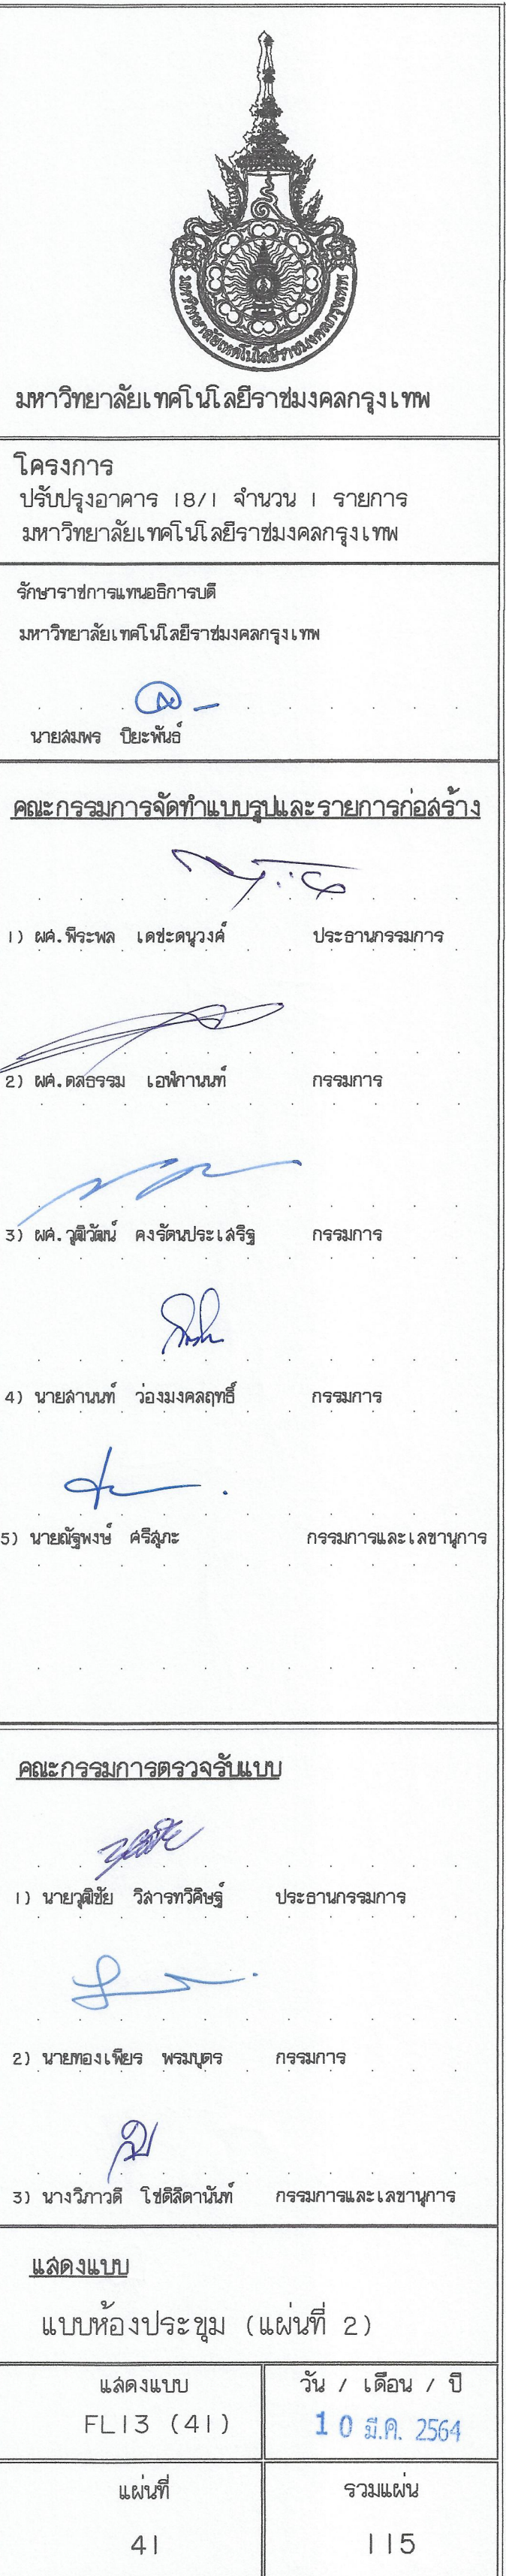 มหาวิทยาลัยเทคโนโลยีราชมงคลกรุงเทพ
มหาวิทยาลัยเทคโนโลยีราชมงคลกรุงเทพ
โครงการ
ปรับปรุงอาคาร 18/1 จำนวน 1 รายการ
มหาวิทยาลัยเทคโนโลยีราชมงคลกรุงเทพ
รักษาราชการแทนอธิการบดี
มหาวิทยาลัยเทคโนโลยีราชมงคลกรุงเทพ
นายสมพร ปิยะพันธ์
คณะกรรมการจัดทำแบบรูปและรายการก่อสร้าง
1) ผศ.พีระพล เดชะดนุวงศ์ ประธานกรรมการ
2) ผศ.ดลธรรม เอฬกานนท์ กรรมการ
3) ผศ.วุฒิวัฒน์ คงรัตนประเสริฐ กรรมการ
4) นายสานนท์ ว่องมงคลฤทธิ์ กรรมการ
5) นายณัฐพงษ์ ศรีสุภะ กรรมการและเลขานุการ
คณะกรรมการตรวจรับแบบ
1) นายวุฒิชัย วิสารทวิศิษฐ์ ประธานกรรมการ
2) นายทองเพียร พรมบุตร กรรมการ
3) นางวิภาวดี โชติสิตานันท์ กรรมการและเลขานุการ
แสดงแบบ
แบบห้องประชุม (แผ่นที่ 2)
แสดงแบบ วัน / เดือน / ปี
FL13 (41) 10 มี.ค. 2564
แผ่นที่ รวมแผ่น
41 115